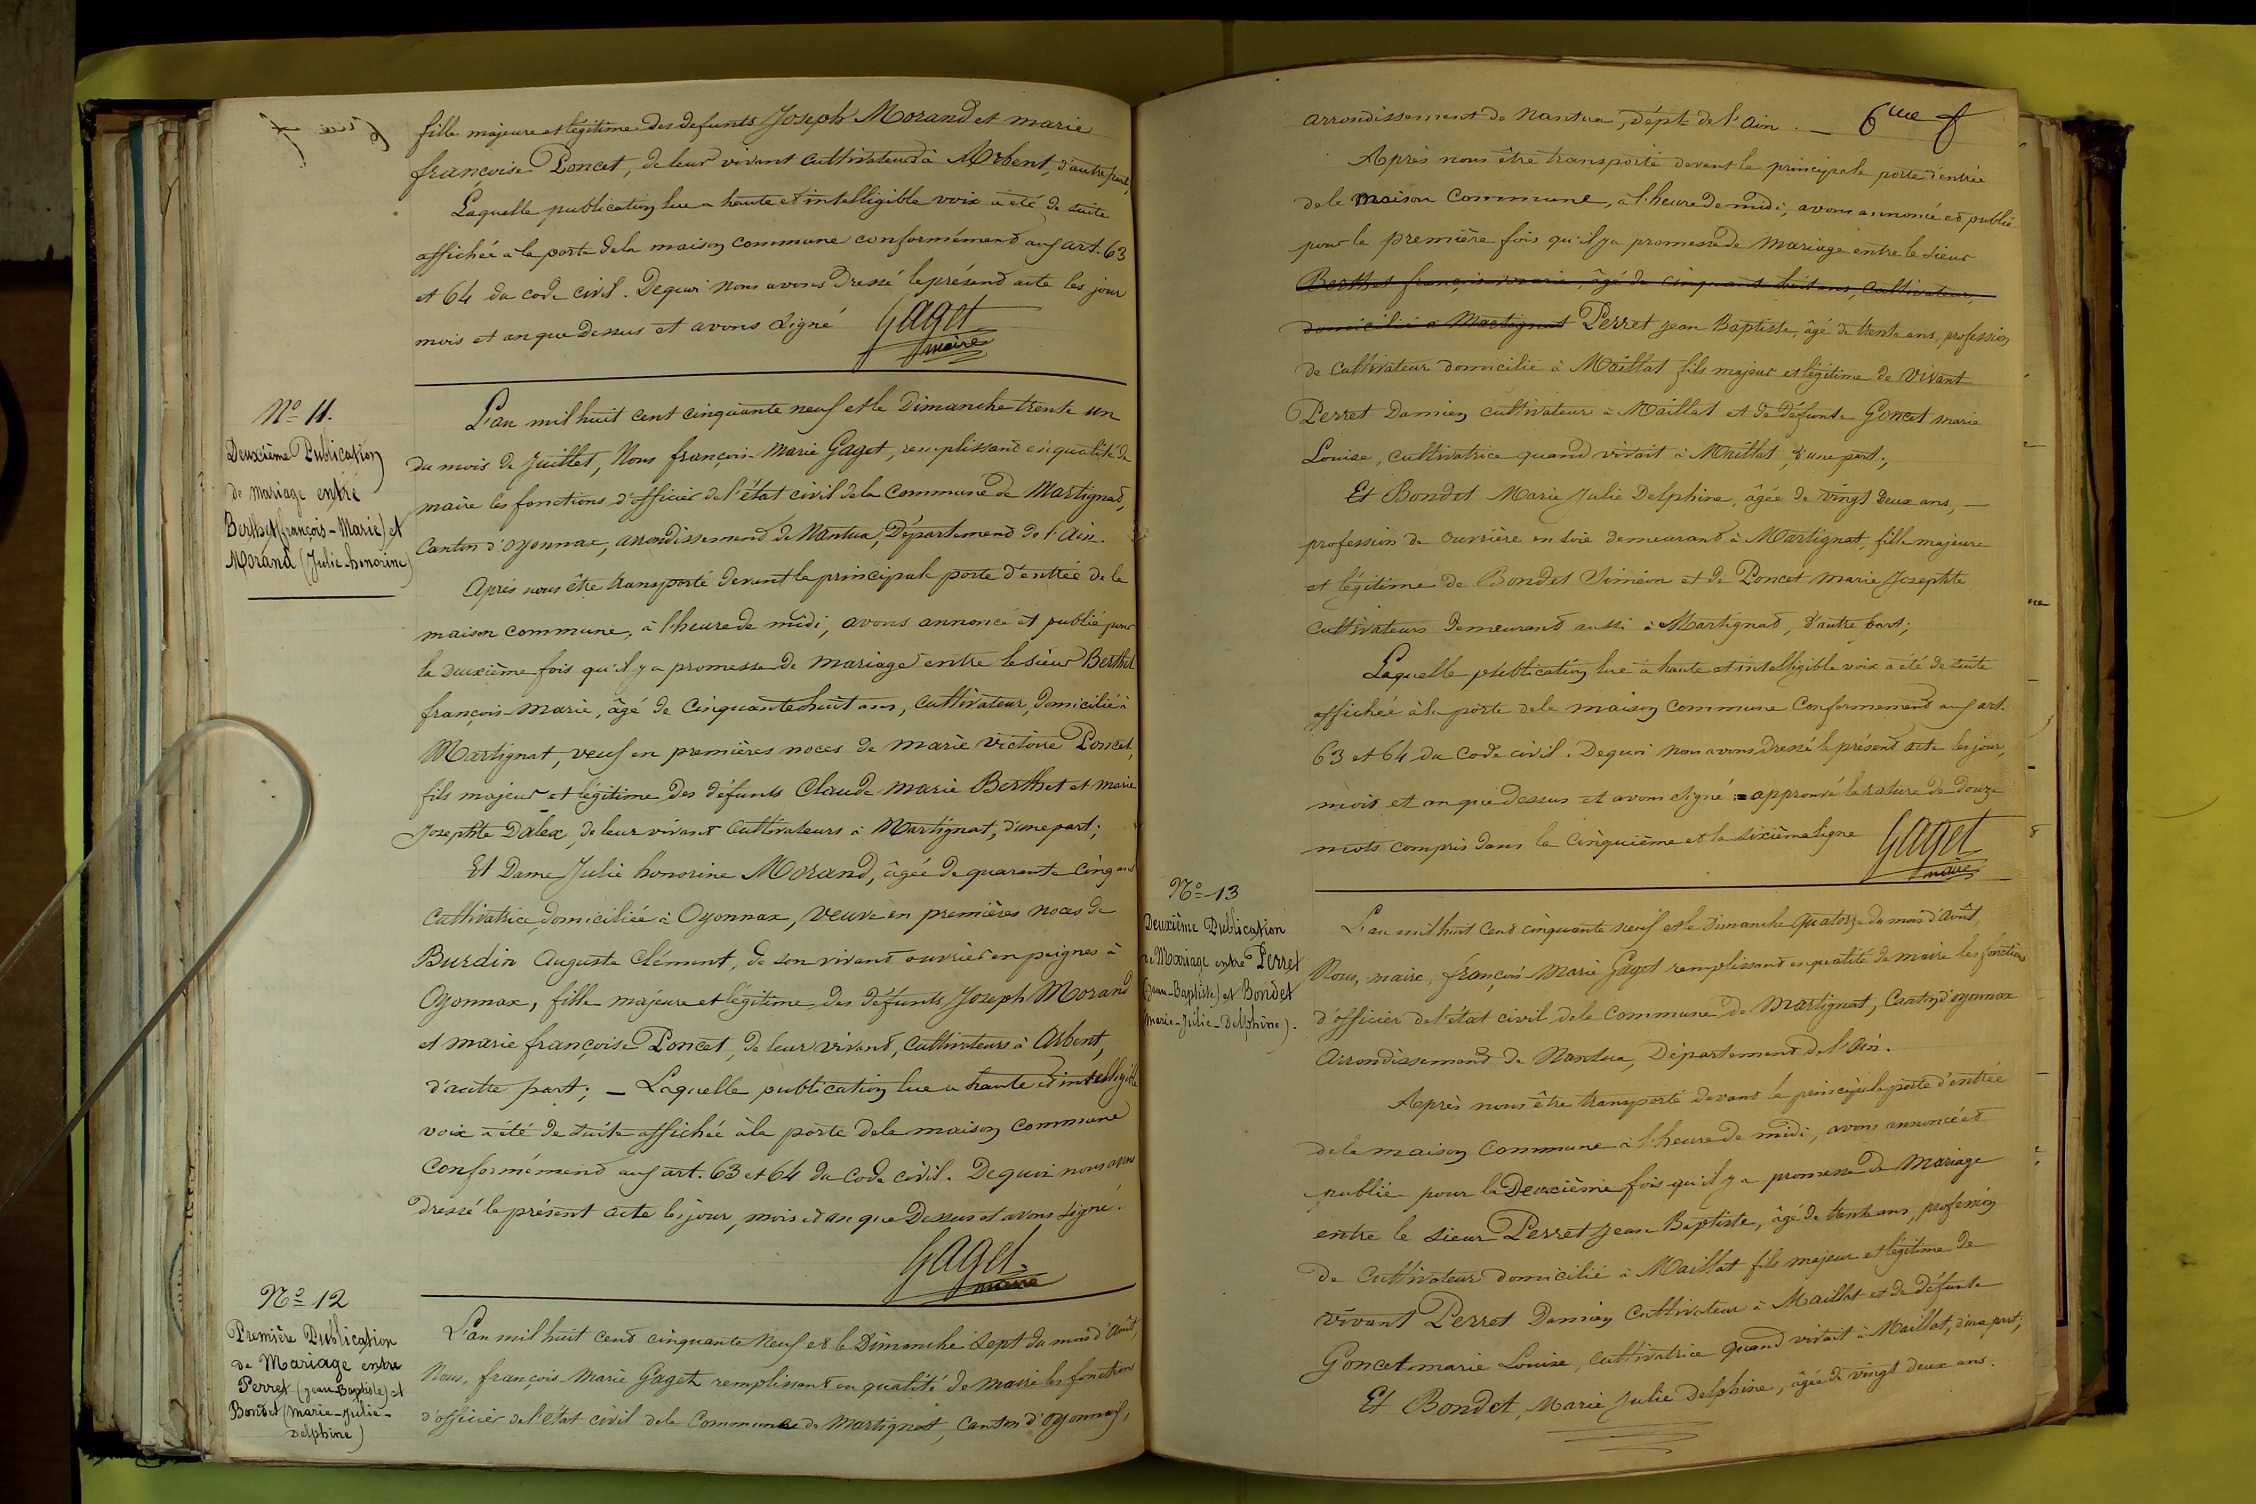 fille majeure et légitime des defunts Joseph Morand et marie
françoise Poncet, de leur vivant cultivateurs à Arbent, d'autre part,
Laquelle publication lue a haute et intelligible voix a été de suite
affichée à la porte de la maison commune conformément aux art. 63
et 64 du code civil. De quoi nous avons dressé le présent acte les jour
mois et an que dessus et avons signé
Gaget
maire
No 11.
Deuxième Publication
de mariage entre
Berthet (françois-Marie) et
Morand (Julie honorine)
L'an mil huit cent cinquante neuf et le Dimanche trente un
du mois de Juillet, Nous françois Marie Gaget, remplissant en qualité de
maire les fonctions d'officier de l'état civil de la commune de Martignat,
Canton d'oyonnax, arrondissement de Nantua, Département de l'ain.
Après nous être transporté devant la principale porte d'entrée de la
maison commune, à l'heure de midi, avons annoncé et publié pour
la deuxième fois qu'il y a promesse de mariage entre le sieur Berthet
françois marie, âgé de cinquante huit ans, cultivateur, domicilié à
Martignat, veuf en premières noces de marie victoire Poncet,
fils majeur et légitime des défunts Claude marie Berthet et marie
Josephte Dalex, de leur vivant cultivateurs à Martignat, d'une part;
Et Dame Julie honorine Morand, âgée de quarante cinq ans
cultivatrice, domiciliée à Oyonnax, veuve en premières noces de
Burdin Auguste Clément, de son vivant ouvrier en peignes à
Oyonnax, fille majeure et légitime des défunts Joseph Morand
et marie françoise Poncet, de leur vivant, cultivateurs à Arbent,
d'autre part; _ Laquelle publication lue a haute et intelligible
voix a été de suite affichée à la porte de la maison commune
conformément aux art. 63 et 64 du code civil. De quoi nous avons
dressé le présent acte les jour, mois et an que dessus et avons signé.
Gaget.
maire
No 12
Première Publication
de Mariage entre
Perret (jean-Baptiste) et
Bondet (Marie-Julie-
Delphine)
L'an mil huit cent cinquante neuf et le Dimanche sept du mois d'août,
Nous, françois Marie Gaget remplissant en qualité de maire les fonctions
d'officier de l'état civil de la Commune de Martignat, canton d'oyonnax,
6me f
arrondissement de Nantua, dépt de l'ain. _
Après nous être transporté devant la principale porte d'entrée
de la maison Commune, à l'heure de midi, avons annoncé et publié
pour la première fois qu'il y a promesse de mariage entre le sieur
Berthet françois marie, âgé de cinquante huit ans, cultivateur,
domicilié à Martignat Perret jean Baptiste, âgé de trente ans, profession
de cultivateur domicilié à Maillat fils majeur et légitime de vivant
Perret Damien cultivateur à Maillat et de défunte Goncet marie
Louise, cultivatrice quand vivait à Maillat, d'une part;
Et Bondet Marie Julie Delphine, âgée de vingt deux ans, _
profession de ouvrière en soie demeurant à Martignat, fille majeure
et légitime de Bondet Siméon et de Poncet Marie Josephte
cultivateurs demeurant aussi à Martignat, d'autre part;
Laquelle publication lue à haute et intelligible voix a été de suite
affichée à la porte de la maison commune conformément aux art.
63 et 64 du code civil. De quoi nous avons dressé le présent acte les jour,
mois et an que dessus et avons signé = approuvé la rature de douze
mots compris dans la cinquième et la sixième ligne
Gaget
maire
No 13
Deuxième Publication
de Mariage entre Perret
(Jean-Baptiste) et Bondet
(Marie-Julie-Delphine).
L'an mil huit cent cinquante neuf et le Dimanche quatorze du mois d'août,
Nous, maire, françois Marie Gaget remplissant en qualité de maire les fonctions
d'officier de l'état civil de la commune de Martignat, Canton d'oyonnax
Arrondissement de Nantua, Département de l'ain.
Après nous être transporté devant la principale porte d'entrée
de la maison commune à l'heure de midi, avons annoncé et
publié pour la Deuxième fois qu'il y a promesse de Mariage
entre le sieur Perret Jean Baptiste, âgé de trente ans, profession
de cultivateur domicilié à Maillat fils majeur et légitime de
vivant Perret Damien cultivateur à Maillat et de défunte
Goncet marie Louise, cultivatrice quand vivait à Maillat, d'une part;
Et Bondet, Marie Julie Delphine, âgée de vingt deux ans.